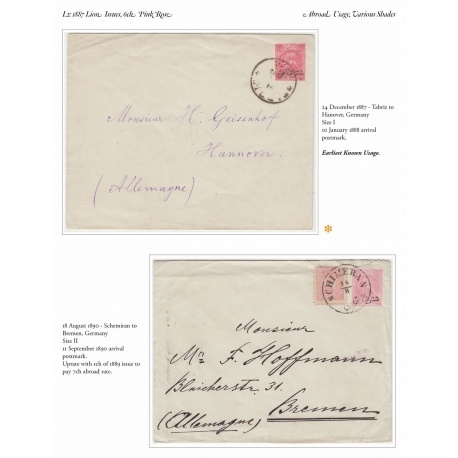 L2 1887 Lion Issues, 6ch. Pink Rose
c Abroad Usage, Various Shades
Monsieur H. Geisenhof
Hannover.
(Allemagne)
24 December 1887 - Tabriz to
Hanover, Germany
Size I
10 January 1888 arrival
postmark.
Earliest Known Usage.
18 August 1890 - Schemiran to
Bremen, Germany
Size II
11 September 1890 arrival
postmark.
Uprate with 1ch of 1889 issue to
pay 7ch abroad rate.
SCHIMERAN
Monsieur
F. Hoffmann
Bleicherstr. 31.
(Allemagne) Bremen